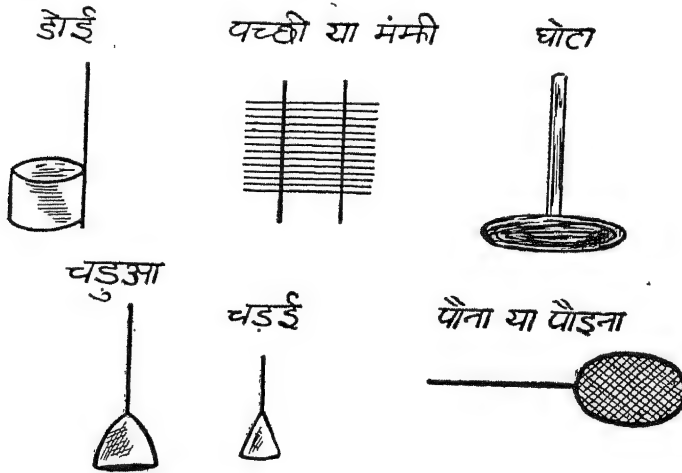 डोई
पच्छी या मंझी
घोटा
चडुआ
चड़ई
पौना या पौइना